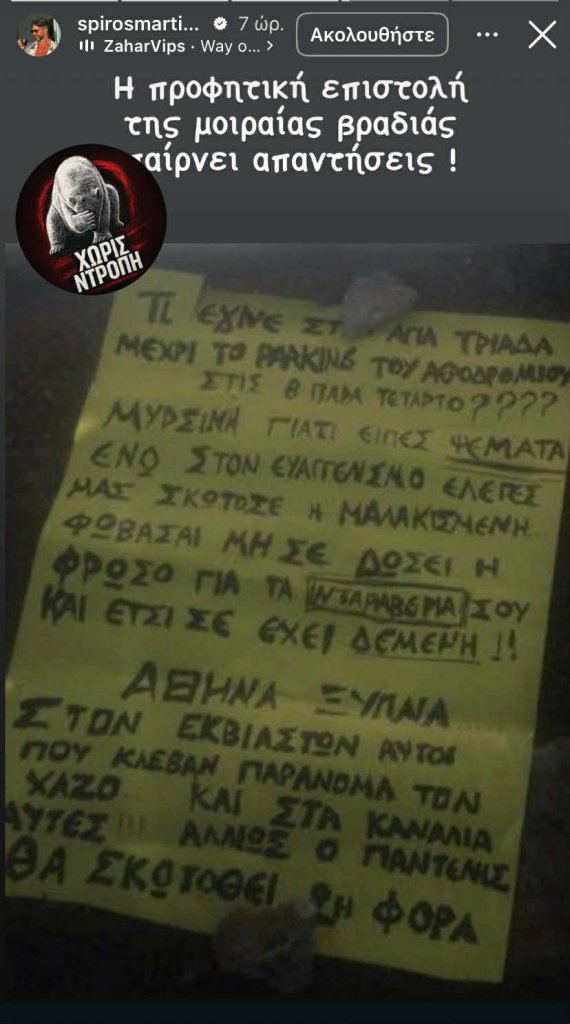 spirosmarti... 7 ώρ.
ZaharVips · Way o... >
Ακολουθήστε
Η προφητική επιστολή
της μοιραίας βραδιάς
παίρνει απαντήσεις !
ΧΩΡΙΣ
ΝΤΡΟΠΗ
ΤΙ ΕΓΙΝΕ ΑΓΙΑ ΤΡΙΑΔΑ
ΜΕΧΡΙ ΤΟ PARKING ΤΟΥ
ΣΤΙΣ 8 ΠΑΡΑ ΤΕΤΑΡΤΟ????
ΜΥΡΣΙΝΗ ΓΙΑΤΙ ΕΙΠΕΣ ΨΕΜΑΤΑ
ΕΝΩ ΣΤΟΝ ΕΛΕΓΕΣ
ΜΑΣ ΣΚΟΤΟΣΕ Η ΜΑΛΑΚΙΣΜΕΝΗ
ΦΩΒΑΣΑΙ ΜΗ ΣΕ ΔΩΣΕΙ Η
ΦΡΩΣΟ ΓΙΑ ΤΑ ΝΤΑΡΑΒΕΡΙΑ ΣΟΥ
ΚΑΙ ΕΤΣΙ ΣΕ ΕΧΕΙ ΔΕΜΕΝΗ !!
ΑΘΗΝΑ ΞΥΠΝΑ
ΣΤΟΝ ΕΚΒΙΑΣΤΩΝ ΑΥΤΟΙ
ΠΟΥ ΚΛΕΒΑΝ ΠΑΡΑΝΟΜΑ ΤΟΝ
ΧΑΖΟ... ΚΑΙ ΣΤΑ ΚΑΝΑΛΙΑ
ΑΥΤΕΣ !!! ΑΛΛΙΩΣ Ο ΠΑΝΤΕΛΗΣ
ΘΑ ΣΚΩΤΟΘΕΙ 2Η ΦΟΡΑ